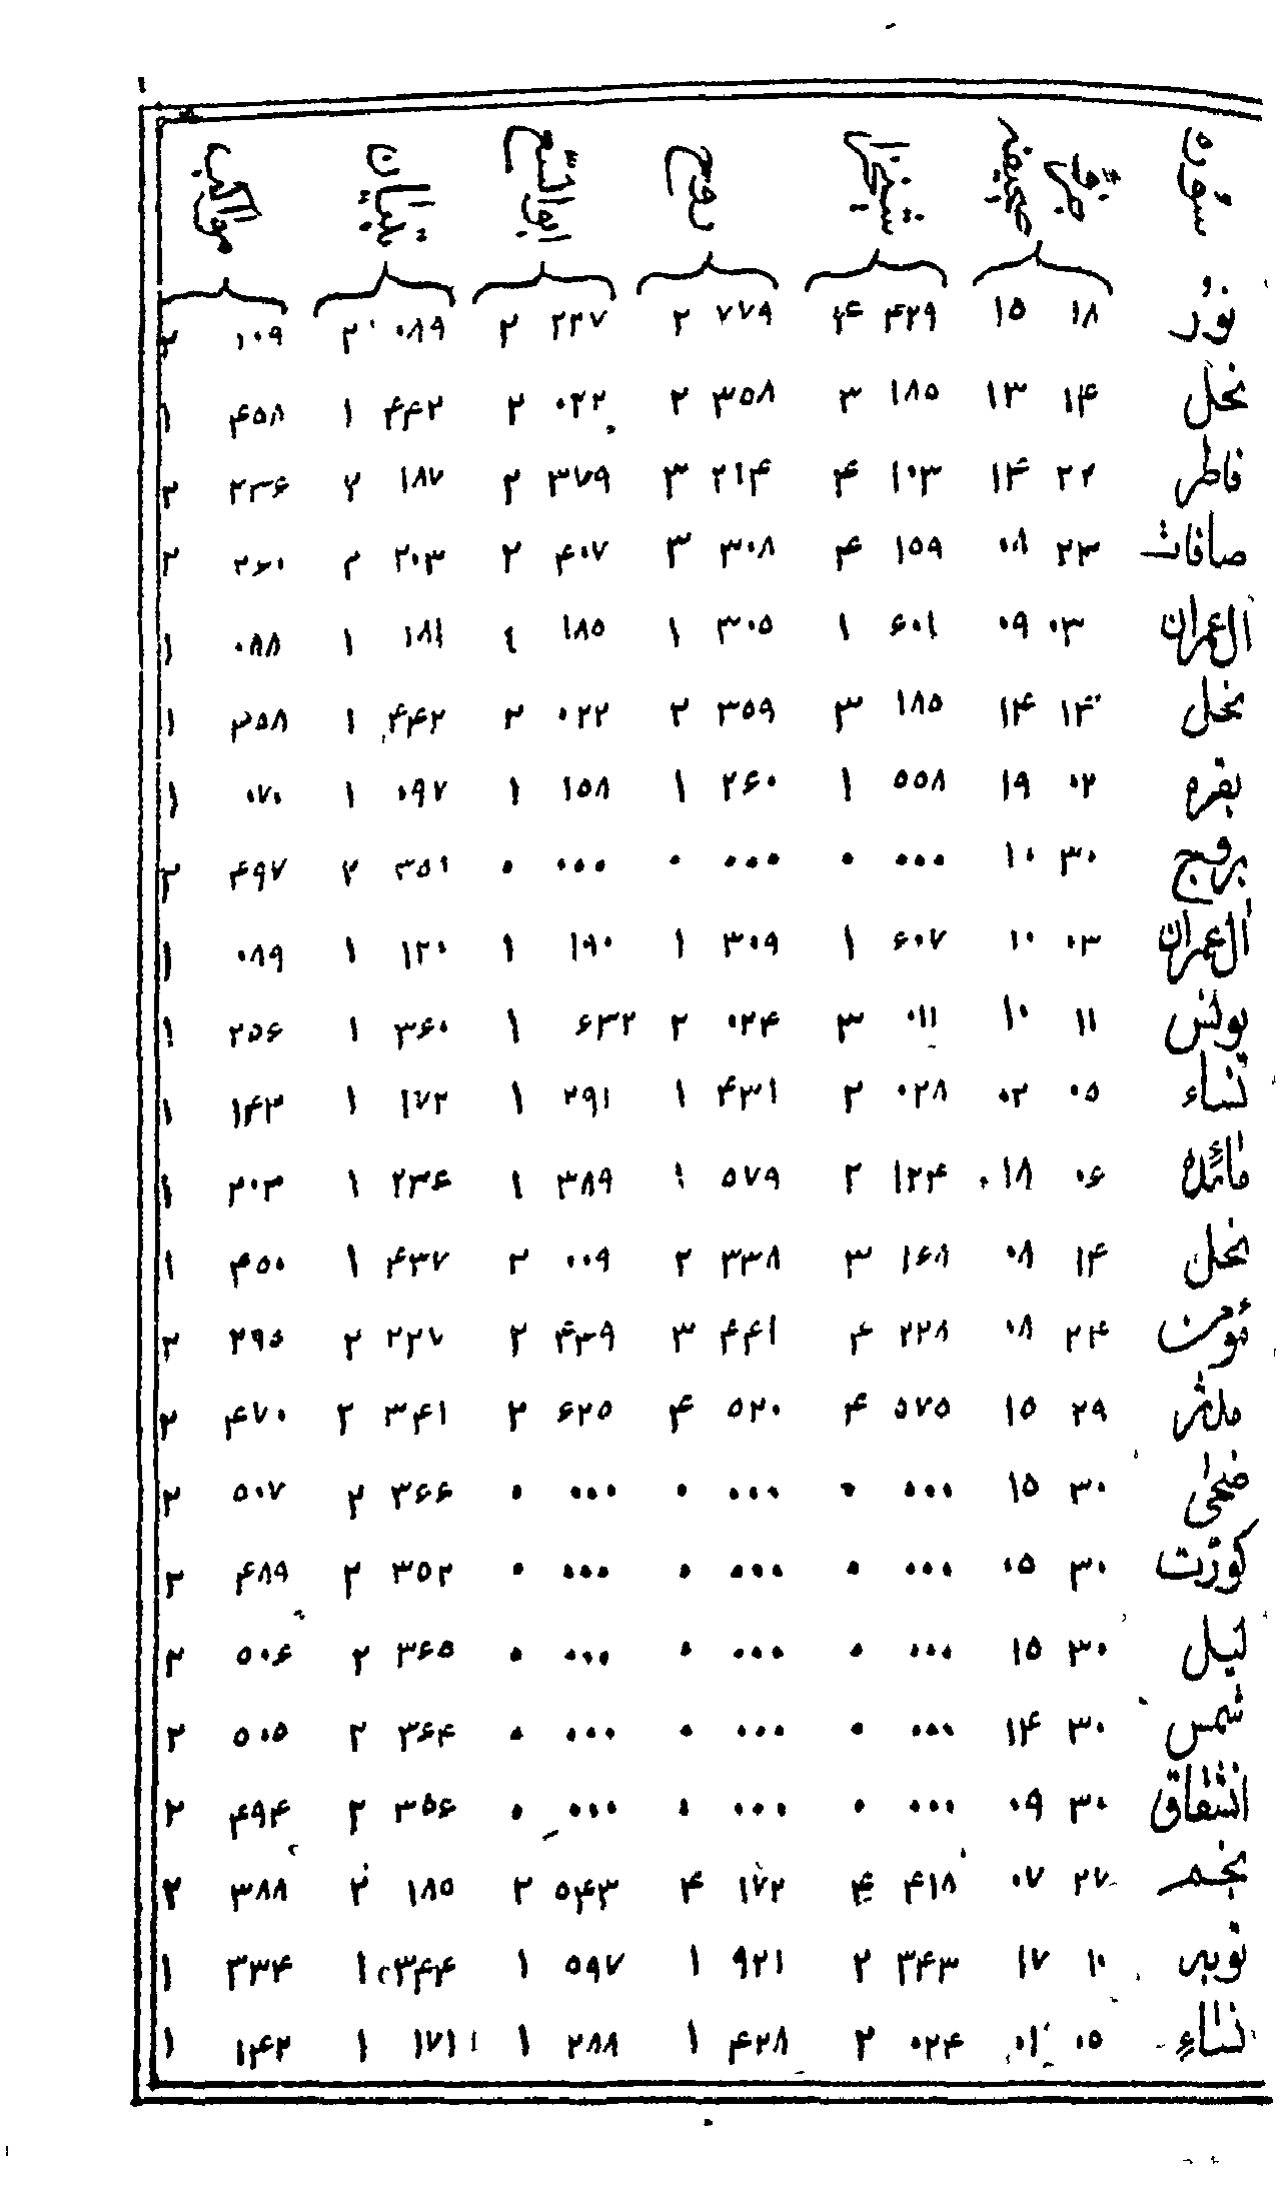 سوره جزء صحیفه شیخزاده روح ابوالسعود تبیان مواکب
نور ۱۸ ۱۵ ۴۲۹ ۴ ۷۷۹ ۲ ۲۲۷ ۲ ۰۸۹ ۲ ۱۰۹ ۲
نحل ۱۴ ۱۳ ۱۸۵ ۳ ۳۵۸ ۲ ۰۲۲ ۲ ۴۴۲ ۱ ۴۵۸ ۱
فاطر ۲۲ ۱۴ ۱۰۳ ۴ ۲۱۴ ۳ ۳۷۹ ۲ ۱۸۷ ۲ ۲۳۶ ۲
صافات ۲۳ ۰۸ ۱۵۹ ۴ ۳۰۸ ۳ ۴۰۷ ۲ ۲۰۳ ۲ ۲۶۰ ۲
ال عمران ۰۳ ۰۹ ۶۰۱ ۱ ۳۰۵ ۱ ۱۸۵ ۱ ۱۸۱ ۱ ۰۸۸ ۱
نحل ۱۴ ۱۴ ۱۸۵ ۳ ۳۵۹ ۲ ۰۲۲ ۲ ۴۴۲ ۱ ۳۵۸ ۱
بقره ۰۲ ۱۹ ۵۵۸ ۱ ۲۶۰ ۱ ۱۵۸ ۱ ۰۹۷ ۱ ۰۷۰ ۱
بروج ۳۰ ۱۰ ۰۰۰ ۰ ۰۰۰ ۰ ۰۰۰ ۰ ۳۵۱ ۲ ۴۹۷ ۲
ال عمران ۰۳ ۱۰ ۶۰۷ ۱ ۳۰۹ ۱ ۱۹۰ ۱ ۱۲۰ ۱ ۰۸۹ ۱
یونس ۱۱ ۱۰ ۰۱۱ ۳ ۰۲۴ ۲ ۶۳۲ ۱ ۳۶۰ ۱ ۲۵۶ ۱
نساء ۰۵ ۰۲ ۰۲۸ ۲ ۴۳۱ ۱ ۲۹۱ ۱ ۱۷۲ ۱ ۱۴۳ ۱
مائده ۰۶ ۱۸ ۱۲۴ ۲ ۵۷۹ ۱ ۳۸۹ ۱ ۲۳۶ ۱ ۲۰۳ ۱
نحل ۱۴ ۰۸ ۱۶۸ ۳ ۳۳۸ ۲ ۰۰۹ ۲ ۴۳۷ ۱ ۴۵۰ ۱
مؤمن ۲۴ ۰۸ ۲۲۸ ۴ ۴۴۱ ۳ ۴۳۹ ۲ ۲۲۷ ۲ ۲۹۵ ۲
مدثر ۲۹ ۱۵ ۵۷۵ ۴ ۵۲۰ ۴ ۶۲۵ ۲ ۳۴۱ ۲ ۴۷۰ ۲
ضحی ۳۰ ۱۵ ۰۰۰ ۰ ۰۰۰ ۰ ۰۰۰ ۰ ۳۶۶ ۲ ۵۰۷ ۲
کورت ۳۰ ۰۵ ۰۰۰ ۰ ۰۰۰ ۰ ۰۰۰ ۰ ۳۵۲ ۲ ۴۸۹ ۲
لیل ۳۰ ۱۵ ۰۰۰ ۰ ۰۰۰ ۰ ۰۰۰ ۰ ۳۶۵ ۲ ۵۰۶ ۲
شمس ۳۰ ۱۴ ۰۰۰ ۰ ۰۰۰ ۰ ۰۰۰ ۰ ۳۶۴ ۲ ۵۰۵ ۲
انشقاق ۳۰ ۰۹ ۰۰۰ ۰ ۰۰۰ ۰ ۰۰۰ ۰ ۳۵۶ ۲ ۴۹۴ ۲
نجم ۲۷ ۰۷ ۴۱۸ ۴ ۱۷۲ ۴ ۵۴۳ ۲ ۱۸۵ ۲ ۳۸۸ ۲
توبه ۱۰ ۱۷ ۳۴۳ ۲ ۹۲۱ ۱ ۵۹۷ ۱ ۳۴۴ ۱ ۳۳۴ ۱
نساء ۰۵ ۰۱ ۰۲۴ ۲ ۴۲۸ ۱ ۲۸۸ ۱ ۱۷۱ ۱ ۱۴۲ ۱